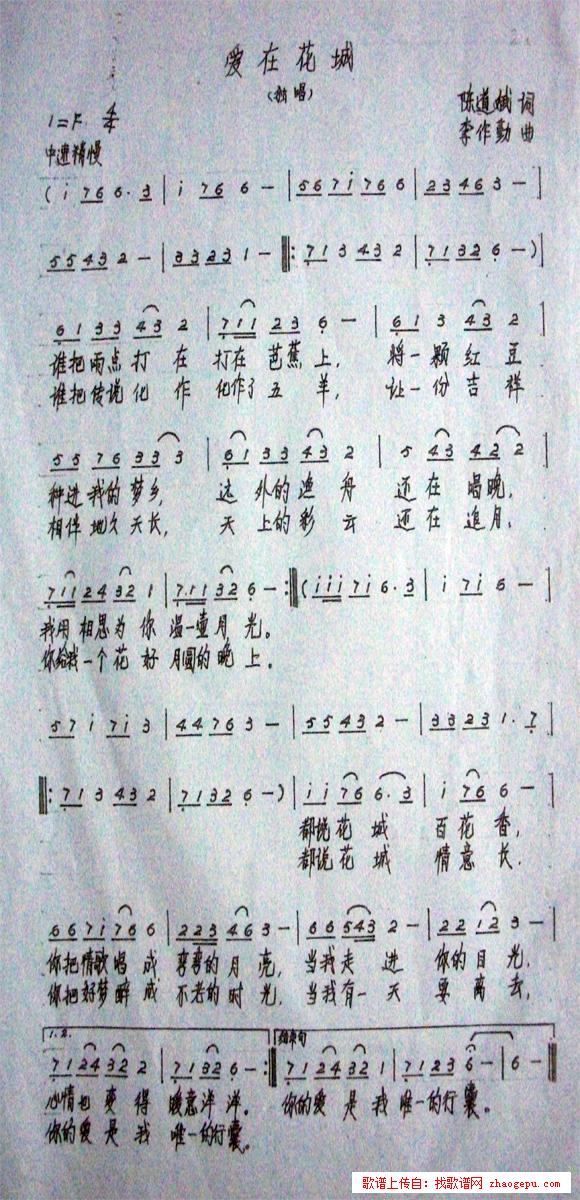 爱在花城
(独唱)
陈道斌 词
1=F 4/4
李作勤 曲
中速稍慢
(i 7 6 6 · 3 | i 7 6 6 - | 5 6 7 i 7 6 6 | 2 3 4 6 3 - |
5 5 4 3 2 - | 3 3 2 3 1 - ‖: 7 1 3 4 3 2 | 7 1 3 2 6 - ) |
6 1 3 3 4 3 2 | 7 1 1 2 3 6 - | 6 1 3 4 3 2 |
谁把雨点打 在 打在 芭蕉上, 将一颗红豆
谁把传说化 作 化作了五 羊, 让一份吉祥
5 5 7 6 3 3 3 | 6 1 3 3 4 3 2 | 5 4 3 4 2 2 |
种进我的梦乡, 外的渔 舟 还在 唱晚,
相伴地久天长, 天上的彩 云 还在 追月,
7 1 1 2 4 3 2 1 | 7 1 1 3 2 6 - :‖ (i i i 7 i 6 · 3 | i 7 i 6 - |
我用相思为你 温一壶月光。
你给我一个花好月圆的晚上。
5 7 i 7 i 3 | 4 4 7 6 3 - | 5 5 4 3 2 - | 3 3 2 3 1 · 7 |
‖: 7 1 3 4 3 2 | 7 1 3 2 6 - ) | i i 7 6 6 · 3 | i 7 6 6 - |
都说花 城 百花香,
都说花 城 情意长.
6 6 7 i 7 6 6 | 2 2 3 4 6 3 - | 6 6 5 4 3 2 - | 2 2 1 2 3 - |
你把情歌唱成 弯弯的月亮, 当我走 进 你的目光,
你把好梦酿成 不老的时光, 当我有一天 要离去,
1.2. 结束句
7 1 2 4 3 2 2 | 7 1 3 2 6 - :‖ 7 1 2 4 3 2 1 | 7 1 2 3 6 - | 6 - ‖
心情也更得 暖意洋洋。 你的爱是我 唯一的行囊。
你的爱是我 唯一的行囊。
歌谱上传自:找歌谱网 zhaogepu.com